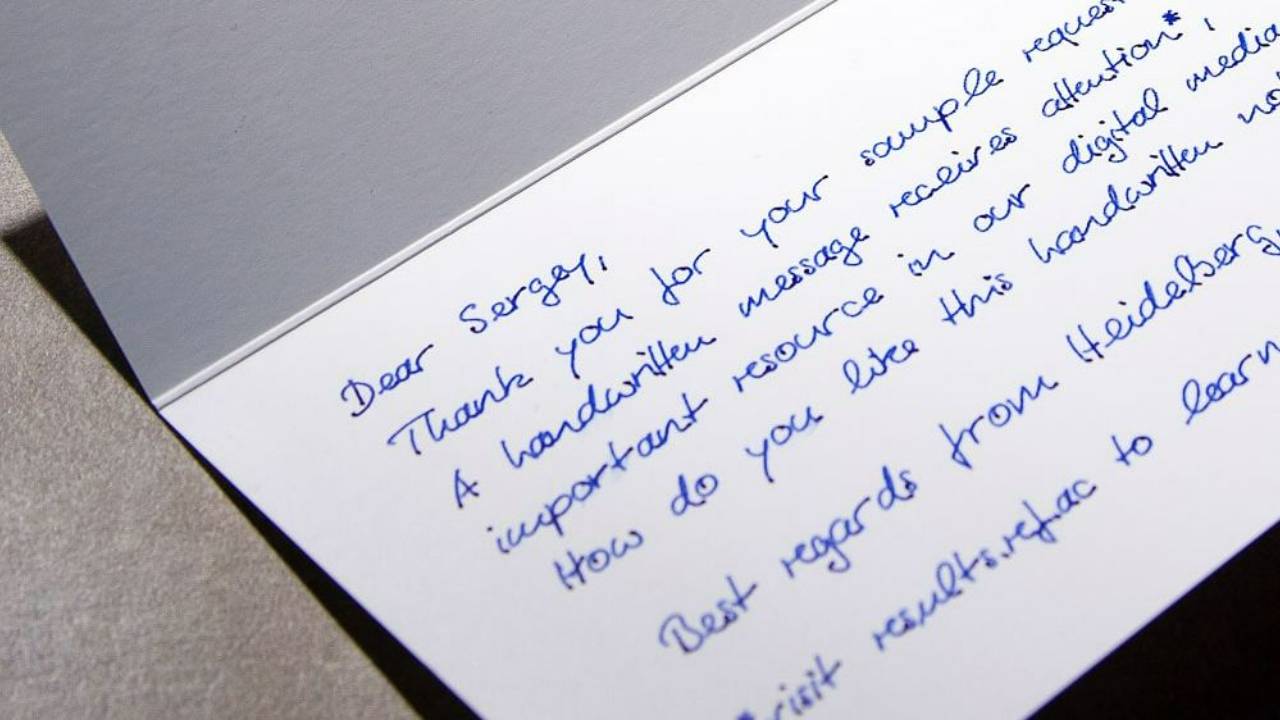 Dear Sergey,
Thank you for your sample
A handwritten message receives attention*,
important resource in our digital media
How do you like this handwritten
Best regards from Heidelberg,
*visit results.ref.ac to learn